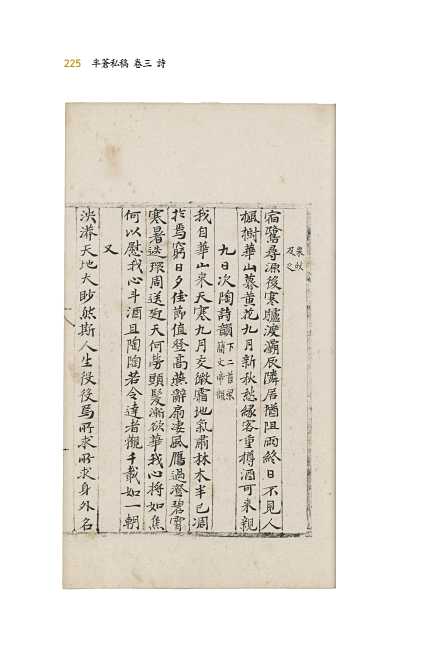 225 半蒼私稿 卷三 詩
來故
及之
宿鷺尋源後寒驢渡灞辰隣居猶阻雨終日不見人
楓樹華山暮黃花九月新秋愁緣客重樽酒可來親
九日次陶詩韻 下二首梁
簡文帝韻
我自華山來天寒九月交微霜地氣肅林木半已凋
於焉窮日夕佳節値登高燕辭扇凄風鴈過澄碧霄
寒暑迭環周送迎天何勞頭髮漸欲華我心將如焦
何以慰我心斗酒且陶陶若令達者觀千載如一朝
又
泱漭天地大眇然斯人生役役焉所求所求身外名